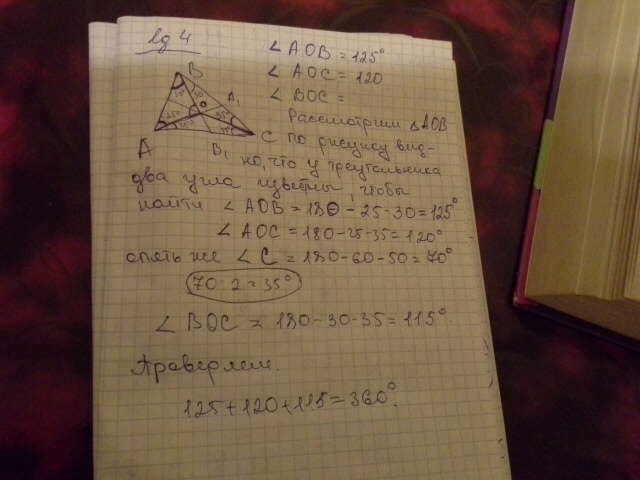 ∠AOB = 125°
∠AOC = 120
B
∠BOC =
A₁
O
Рассмотрим △AOB
C по рисунку вид-
A
B₁ но, что у треугольника
два угла известны, чтобы
найти ∠AOB = 180 - 25 - 30 = 125°
∠AOC = 180 - 25 - 35 = 120°
опять же ∠C = 180 - 60 - 50 = 70°
70 : 2 = 35°
∠BOC = 180 - 30 - 35 = 115°
Проверяем.
125 + 120 + 115 = 360°.